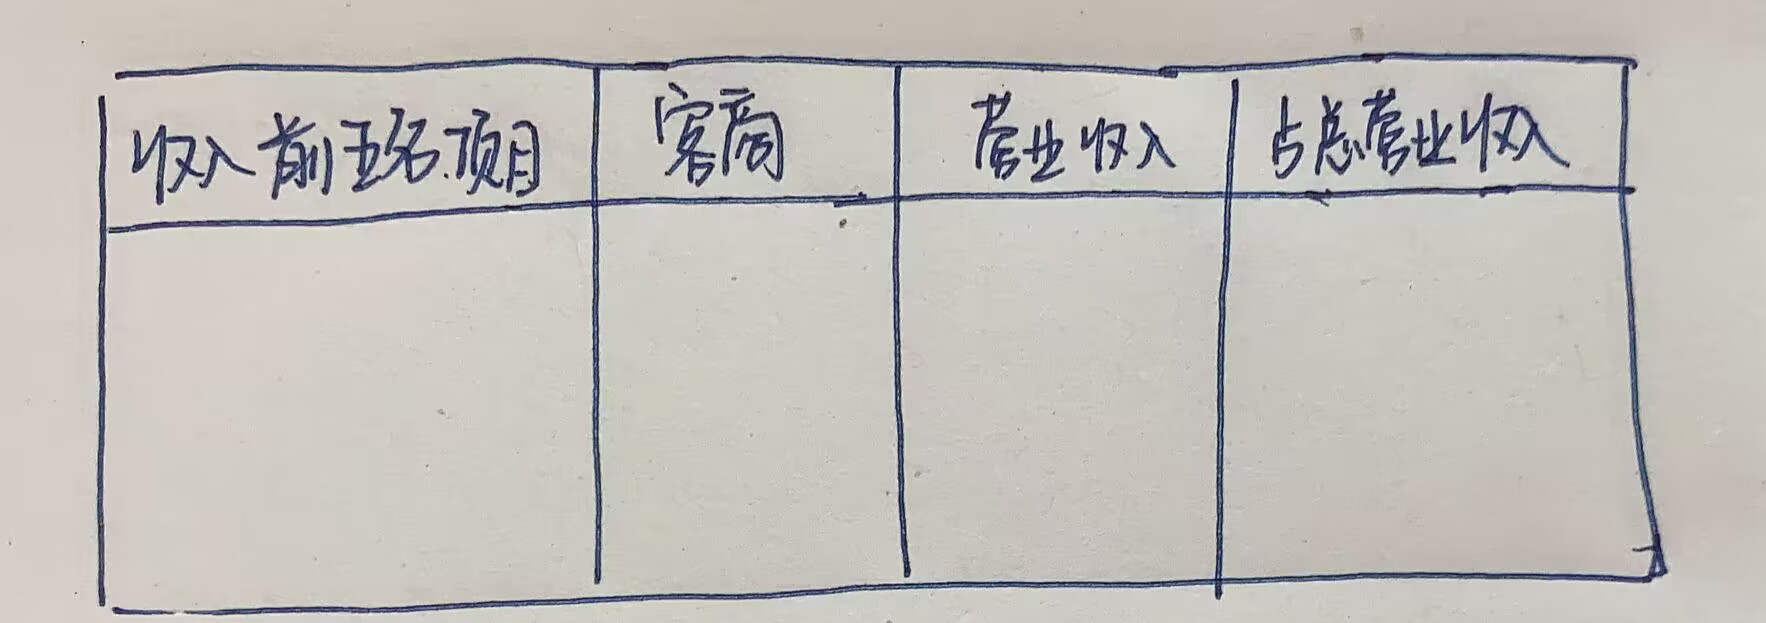 收入前五名项目 客商 营业收入 占总营业收入